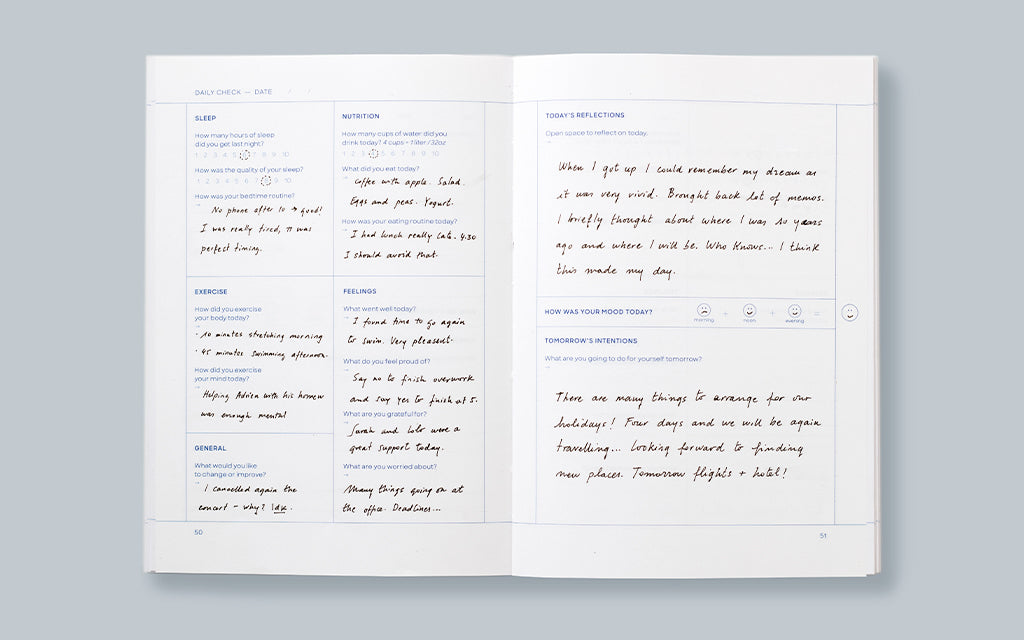 DAILY CHECK — DATE / /
SLEEP
How many hours of sleep
did you get last night?
1 2 3 4 5 7 8 9 10
How was the quality of your sleep?
1 2 3 4 5 6 7 9 10
How was your bedtime routine?
No phone after 10 → good!
I was really tired, it was
perfect timing.
NUTRITION
How many cups of water did you
drink today? 4 cups = 1 liter / 32oz
1 2 3 4 5 6 7 8 9 10
What did you eat today?
Coffee with apple. Salad.
Eggs and peas. Yogurt.
How was your eating routine today?
I had lunch really late. 4:30
I should avoid that.
EXERCISE
How did you exercise
your body today?
· 10 minutes stretching morning
· 45 minutes swimming afternoon.
How did you exercise
your mind today?
Helping Adrien with his homew
was enough mental
FEELINGS
What went well today?
I found time to go again
to swim. Very pleasent.
What do you feel proud of?
Say no to finish overwork
and say yes to finish at 5.
What are you grateful for?
Sarah and Lolo were a
great support today.
What are you worried about?
Many things going on at
the office. Deadlines...
GENERAL
What would you like
to change or improve?
I cancelled again the
concert – why? Idk.
50
TODAY'S REFLECTIONS
Open space to reflect on today.
When I got up I could remember my dream as
it was very vivid. Brought back lot of memos.
I briefly thought about where I was 10 years
ago and where I will be. Who knows... I think
this made my day.
HOW WAS YOUR MOOD TODAY? + + =
morning noon evening
TOMORROW'S INTENTIONS
What are you going to do for yourself tomorrow?
There are many things to arrange for our
holidays! Four days and we will be again
travelling... Looking forward to finding
new places. Tomorrow flights + hotel!
51